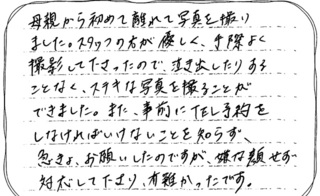 母親から初めて離れて写真を撮り
ました。スタッフの方が優しく、手際よく
撮影して下さったので、泣き出したりする
ことなく、ステキな写真を撮ることが
できました。また、事前にTEL予約を
しなければいけないことを知らず、
急きょ、お願いしたのですが、嫌な顔せず
対応して下さり、有難かったです。